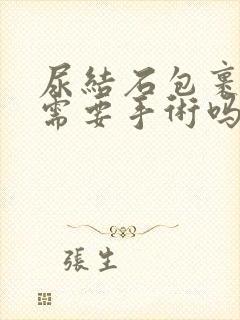 尿結石包裹
需要手術吗
張生